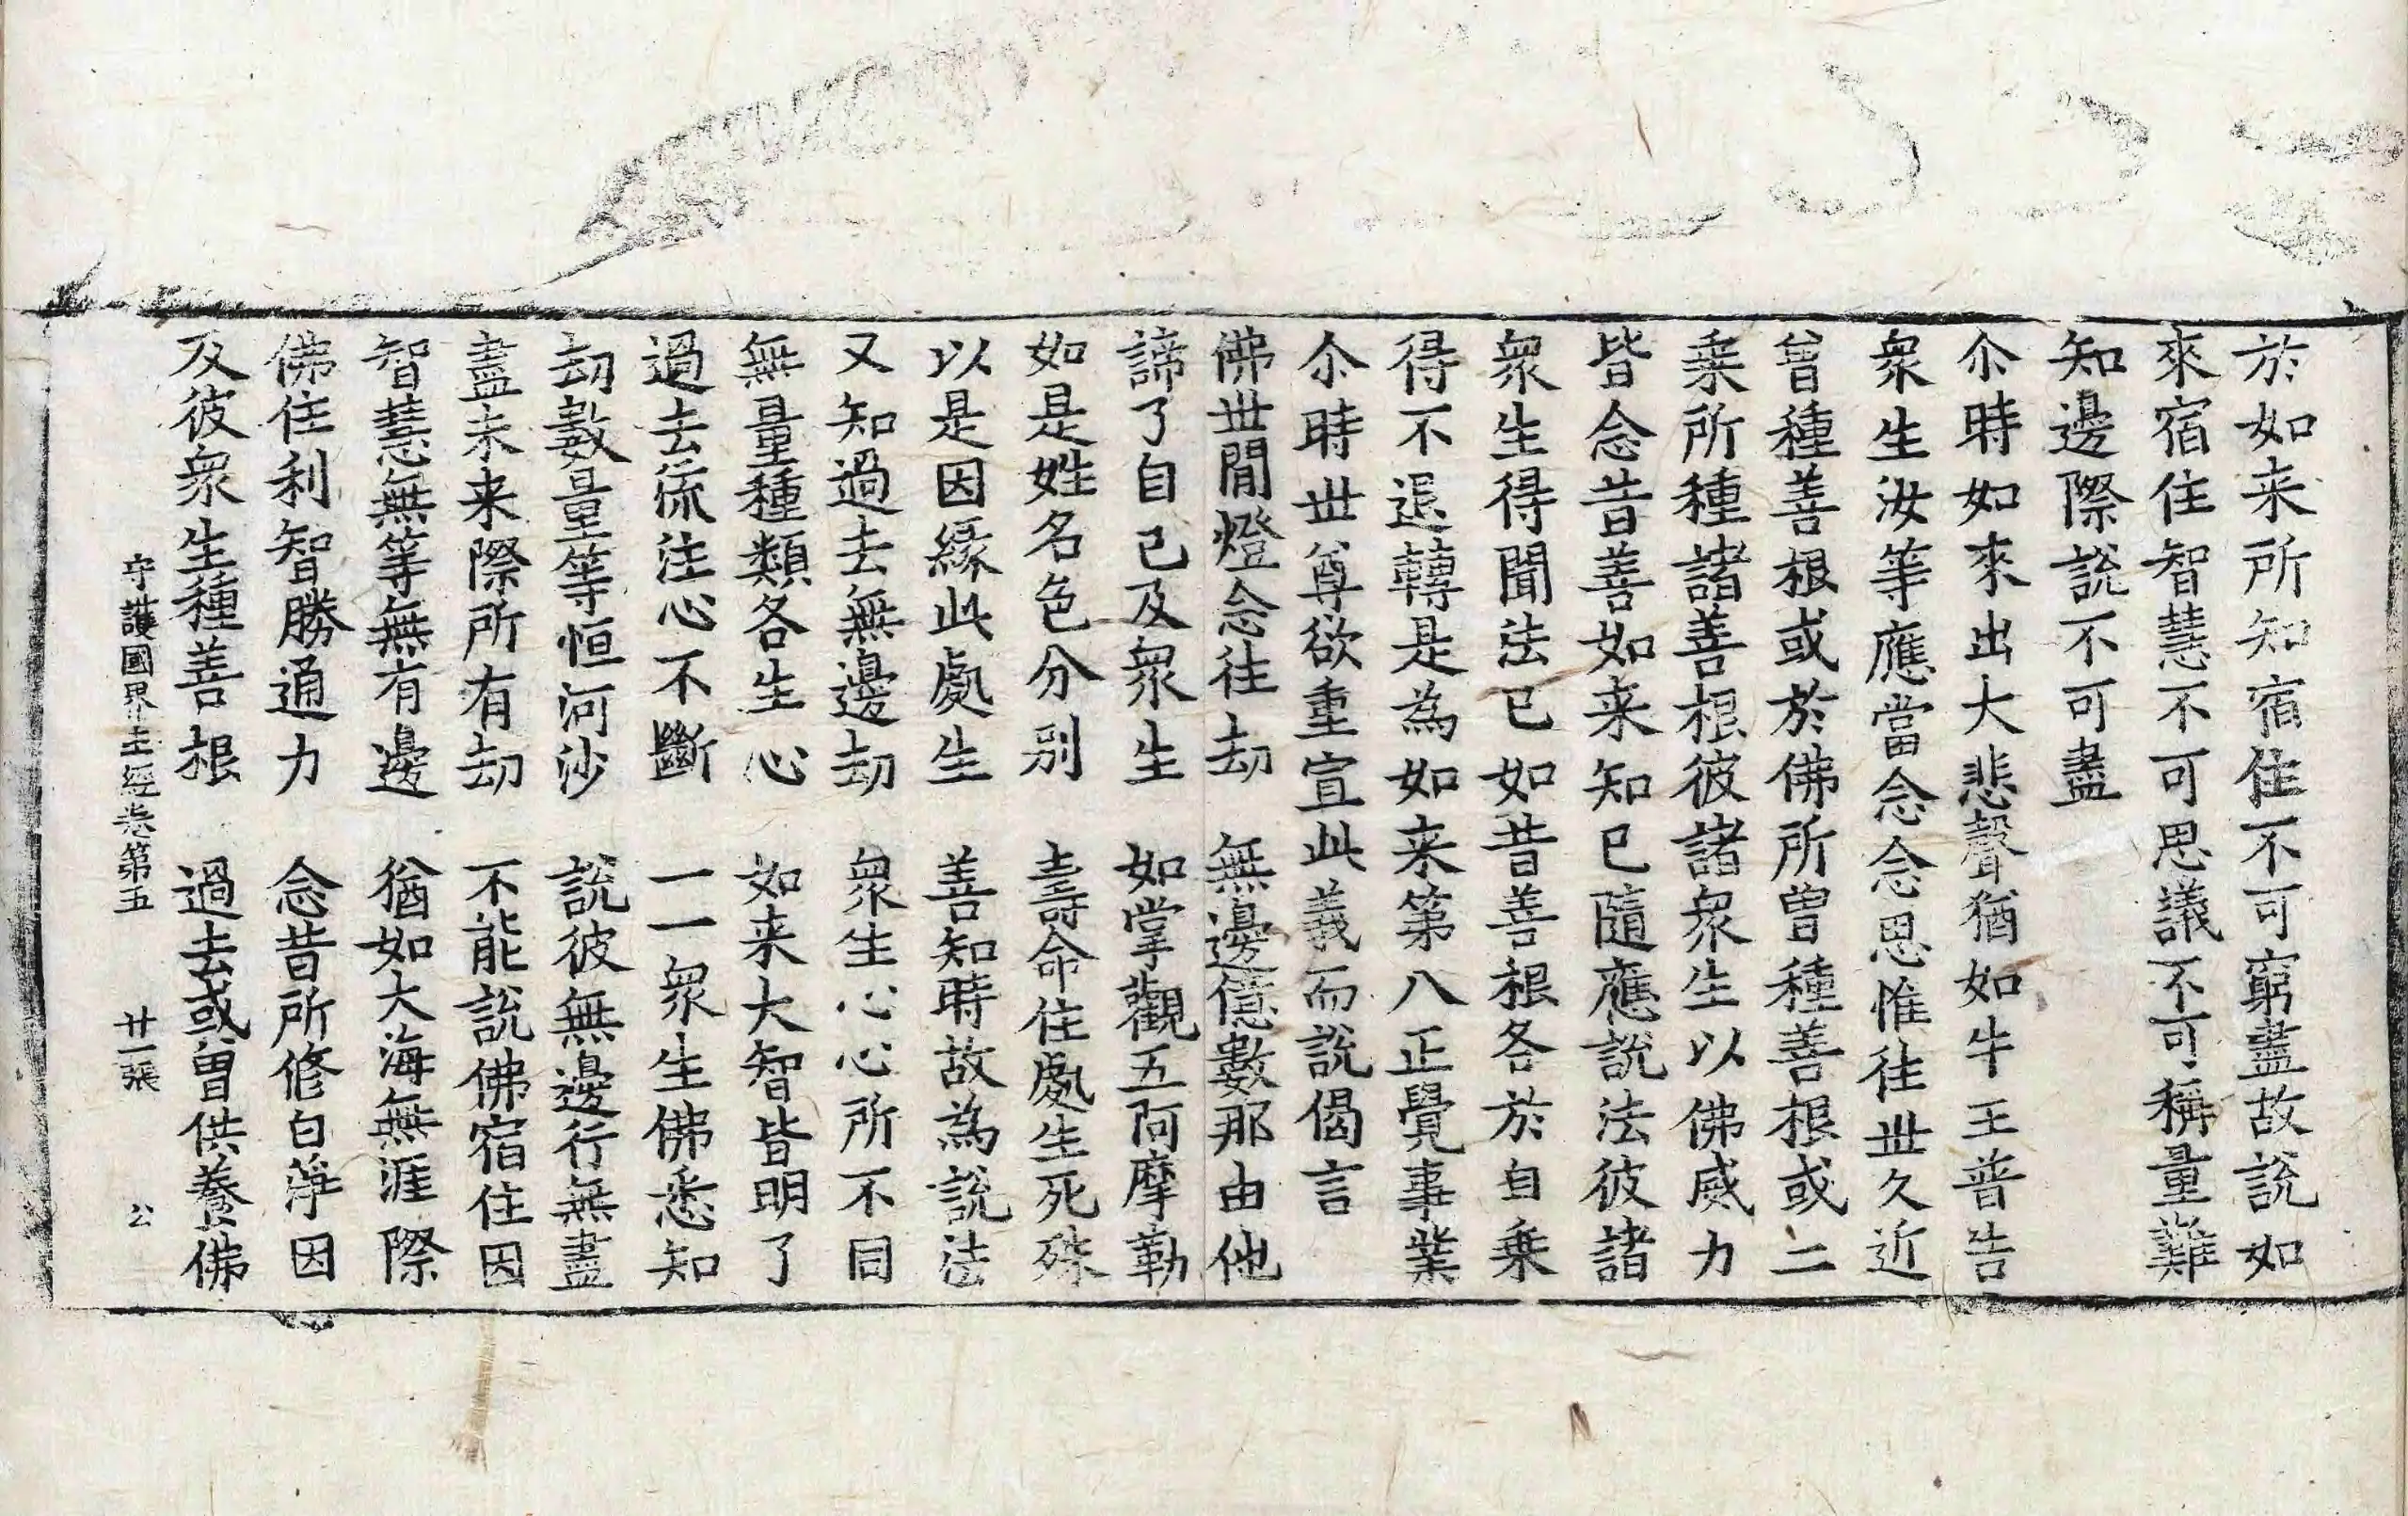 於如来所知宿住不可窮盡故說如
來宿住智慧不可思議不可稱量難
知邊際說不可盡
尒時如來出大悲聲猶如牛王普告
衆生汝等應當念念思惟往世久近
曾種善根或於佛所曾種善根或二
乗所種諸善根彼諸衆生以佛威力
皆念昔善如来知已隨應說法彼諸
衆生得聞法已如昔善根各於自乗
得不退轉是為如来第八正覺事業
尒時世尊欲重宣此義而說偈言
佛世間燈念往劫　無邊億數那由他
諦了自己及衆生　如掌觀五阿摩勒
如是姓名色分别　壽命住處生死殊
以是因緣此處生　善知時故為說法
又知過去無邊劫　衆生心心所不同
無量種類各生心　如来大智皆明了
過去流注心不斷　一一衆生佛悉知
劫數量等恒河沙　說彼無邊行無盡
盡未来際所有劫　不能說佛宿住因
智慧無等無有邊　猶如大海無涯際
佛住利智勝通力　念昔所修白淨因
及彼衆生種善根　過去或曽供養佛
守護國界主經卷第五　廿一張　公